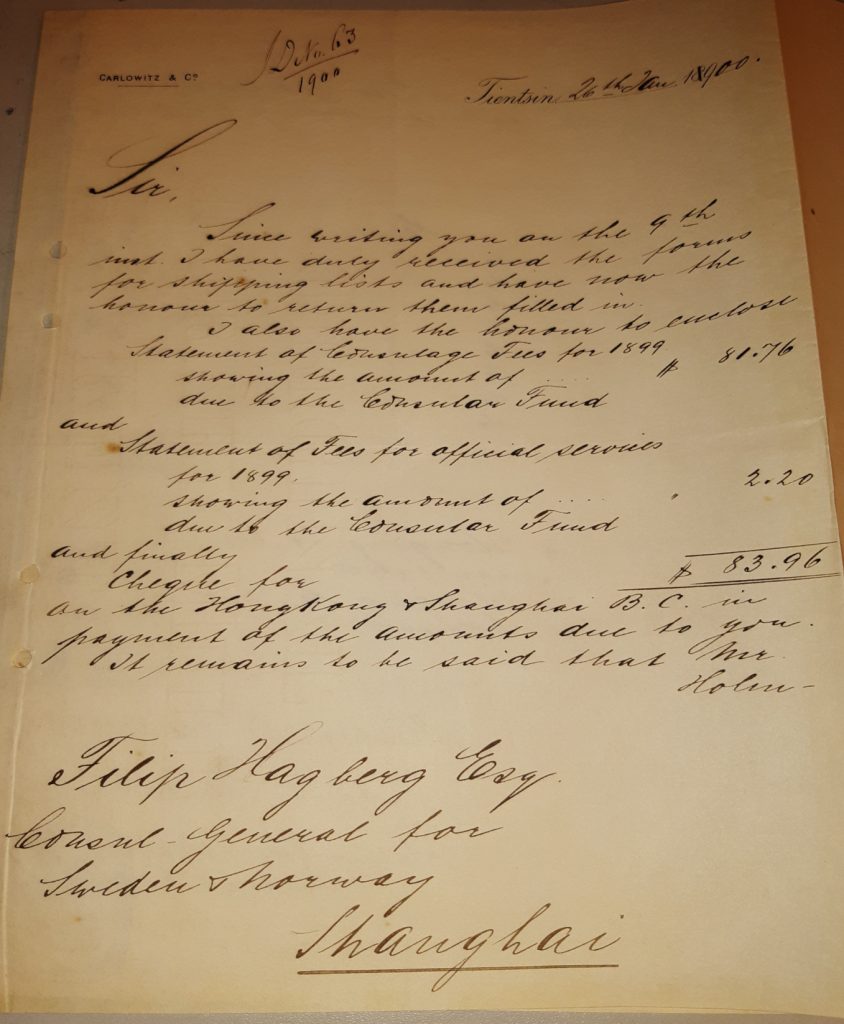 CARLOWITZ & Co
D No. 63
1900
Tientsin, 26th Jan 1900.
Sir,
Since writing you on the 9th
inst. I have duly received the forms
for shipping lists and have now the
honour to return them filled in.
I also have the honour to enclose
Statement of Consulage Fees for 1899
showing the amount of .... $ 81.76
due to the Consular Fund
and
Statement of Fees for official services
for 1899.
showing the amount of .... " 2.20
due to the Consular Fund
and finally
Cheque for $ 83.96
on the HongKong & Shanghai B. C. in
payment of the amounts due to you.
It remains to be said that Mr.
Holm-
Filip Hagberg Esq.
Consul-General for
Sweden & Norway
Shanghai